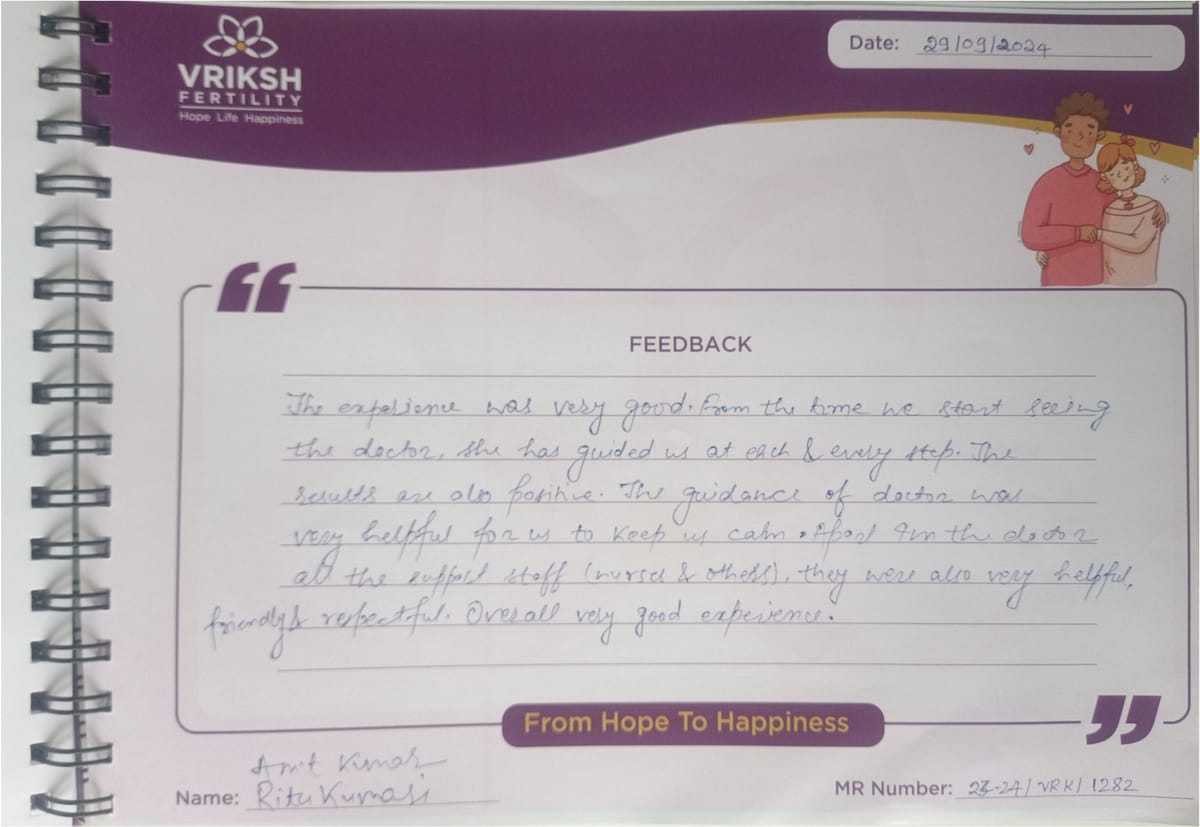 VRIKSH
FERTILITY
Hope Life Happiness
Date: 29/09/2024
FEEDBACK
The experience was very good. From the time we start seeing
the doctor, she has guided us at each & every step. The
results are also positive. The guidance of doctor was
very helpful for us to keep us calm. Apart from the doctor
all the support staff (nurses & others), they were also very helpful,
friendly & respectful. Overall very good experience.
From Hope To Happiness
Amit Kumar
Name: Ritu Kumari
MR Number: 23-24/VRK/1282